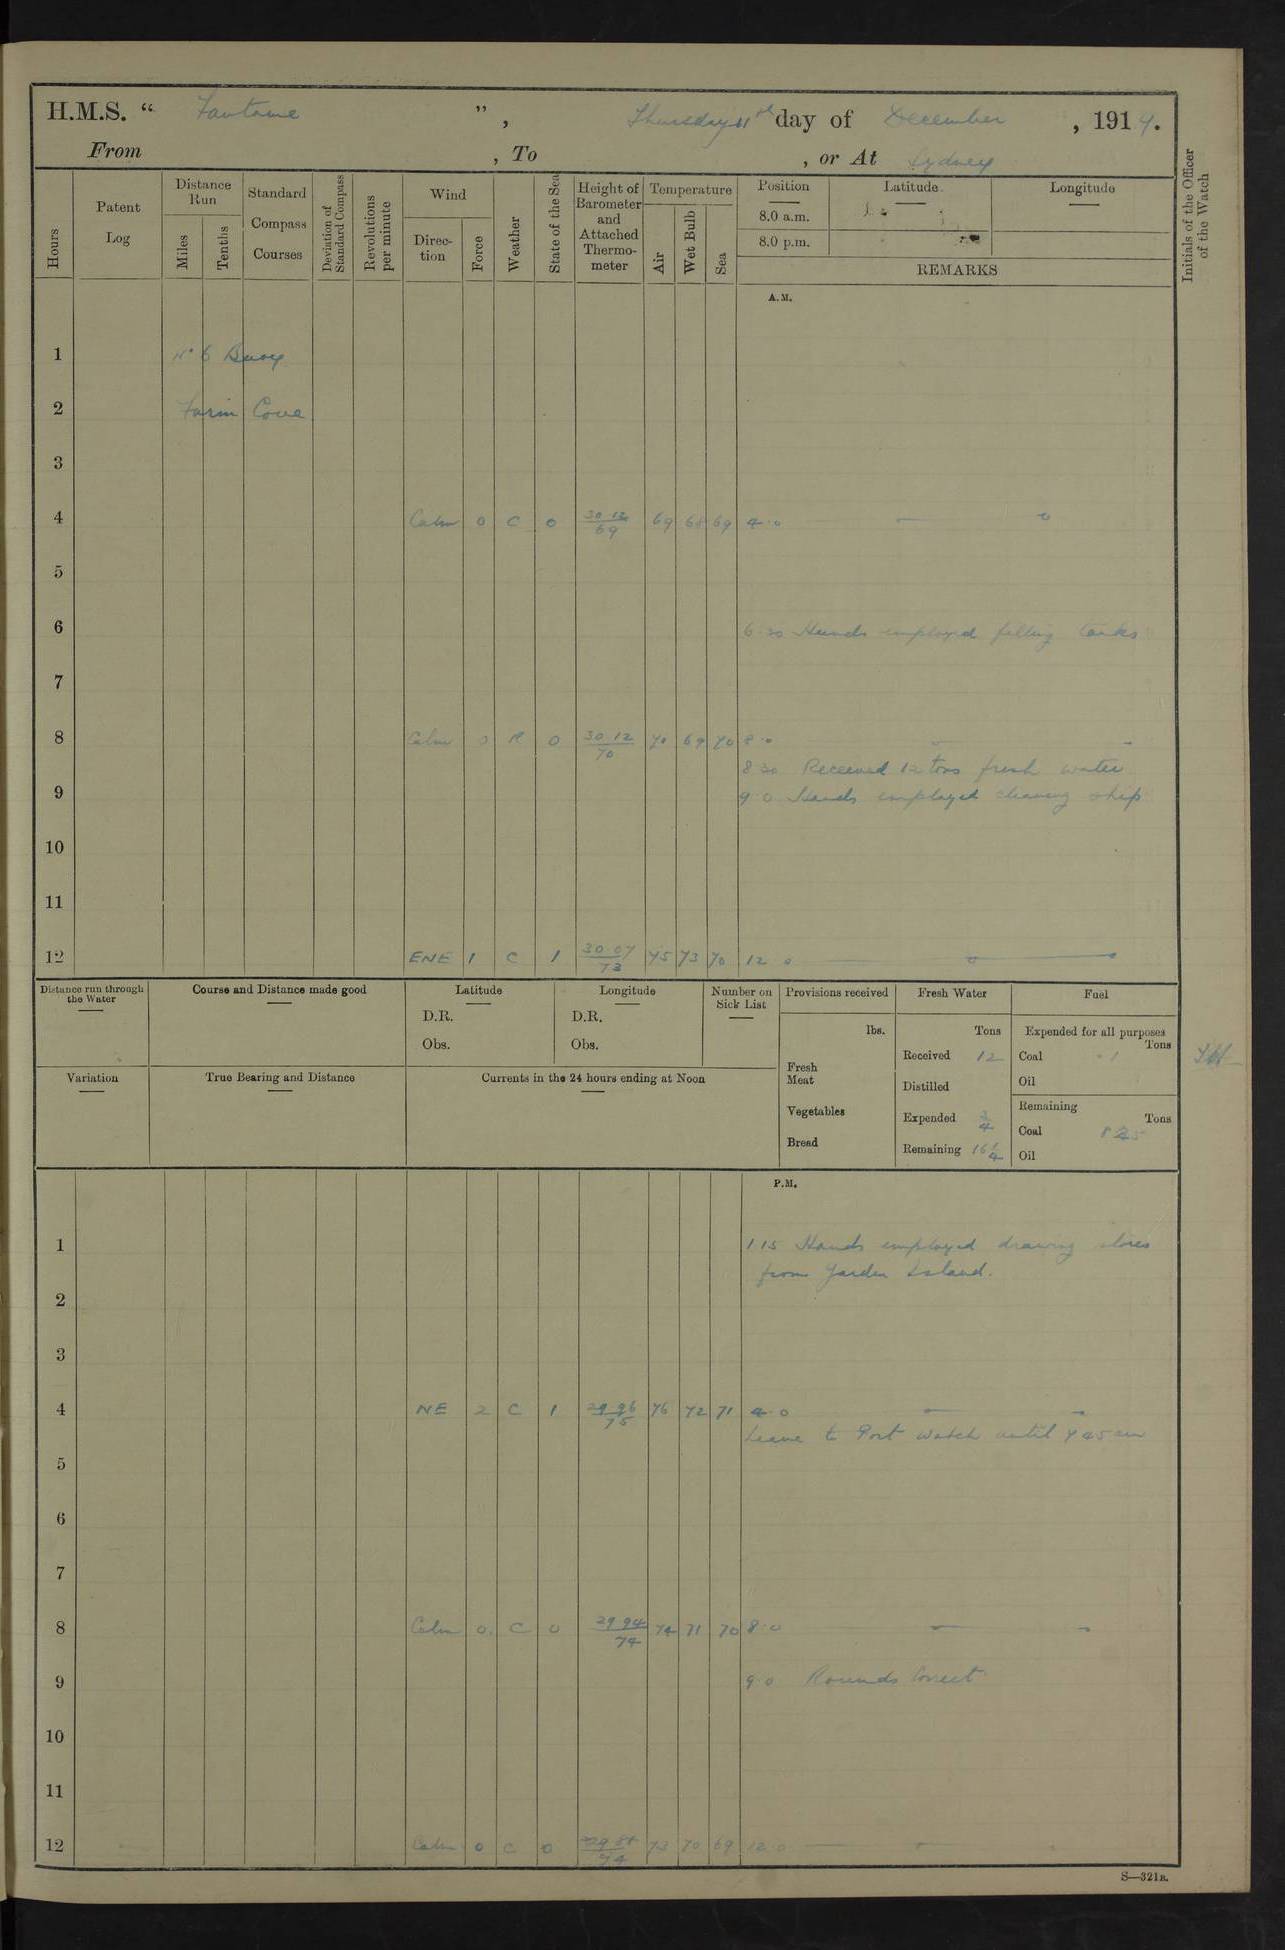 H.M.S. “ Fantome ”, Thursday 11th day of December, 1914.
From , To , or At Sydney
Hours
Patent Log
Distance Run
Miles
Tenths
Standard Compass Courses
Deviation of Standard Compass
Revolutions per minute
Wind
Direction
Force
Weather
State of the Sea
Height of Barometer and Attached Thermometer
Temperature
Air
Wet Bulb
Sea
Position
8.0 a.m.
8.0 p.m.
Latitude
Longitude
REMARKS
Initials of the Officer of the Watch
A.M.
1 No 6 Buoy
2 Farm Cove
3
4 Calm 0 C 0 30.12/69 69 68 69 4.0
5
6 6.30 Hands employed filling tanks
7
8 Calm 0 R 0 30.12/70 70 69 70 8.0
8.30 Received 12 tons fresh water
9 9.0 Hands employed cleaning ship
10
11
12 ENE 1 C 1 30.07/73 75 73 70 12.0
Distance run through the Water
Course and Distance made good
Latitude
D.R.
Obs.
Longitude
D.R.
Obs.
Number on Sick List
Provisions received
lbs.
Fresh Meat
Vegetables
Bread
Fresh Water
Tons
Received 12
Distilled
Expended 3/4
Remaining 16 1/4
Fuel
Expended for all purposes
Tons
Coal 1
Oil
Remaining
Tons
Coal
Oil
Variation
True Bearing and Distance
Currents in the 24 hours ending at Noon
P.M.
1 1.15 Hands employed drawing stores
from Garden Island.
2
3
4 NE 2 C 1 29.96/75 76 72 71 4.0
Leave to Port watch until 7.45 am
5
6
7
8 Calm 0 C 0 29.94/74 74 71 70 8.0
9 9.0 Rounds Correct
10
11
12 Calm 0 C 0 73 70 69 12.0
S—321B.